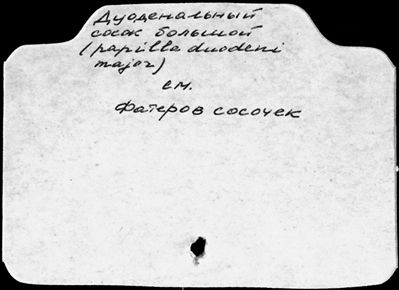 Дуоденальный
сосок большой
(papilla duodeni
major)
см.
Фатеров сосочек